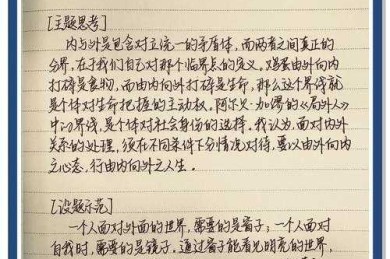 [主题思考]
内与外是包含对立统一的矛盾体，而两者之间真正的
分界，在于我们自己对那个临界点的定义，鸡蛋由外向内
打碎是食物，而由内向外打碎是生命，那么这个界线就
是个体对生命把握的主动权，阿尔贝·加缪的《局外人》
中的界线，是个体对社会身份的选择。我认为，面对内外
关系的处理，须在不同条件下分情况对待，要以由外向内
之心态，行由内向外之人生。
[设题示范]
一个人面对外面的世界，需要的是窗子；一个人面对
自我时，需要的是镜子，通过窗子能看见明亮的世界，